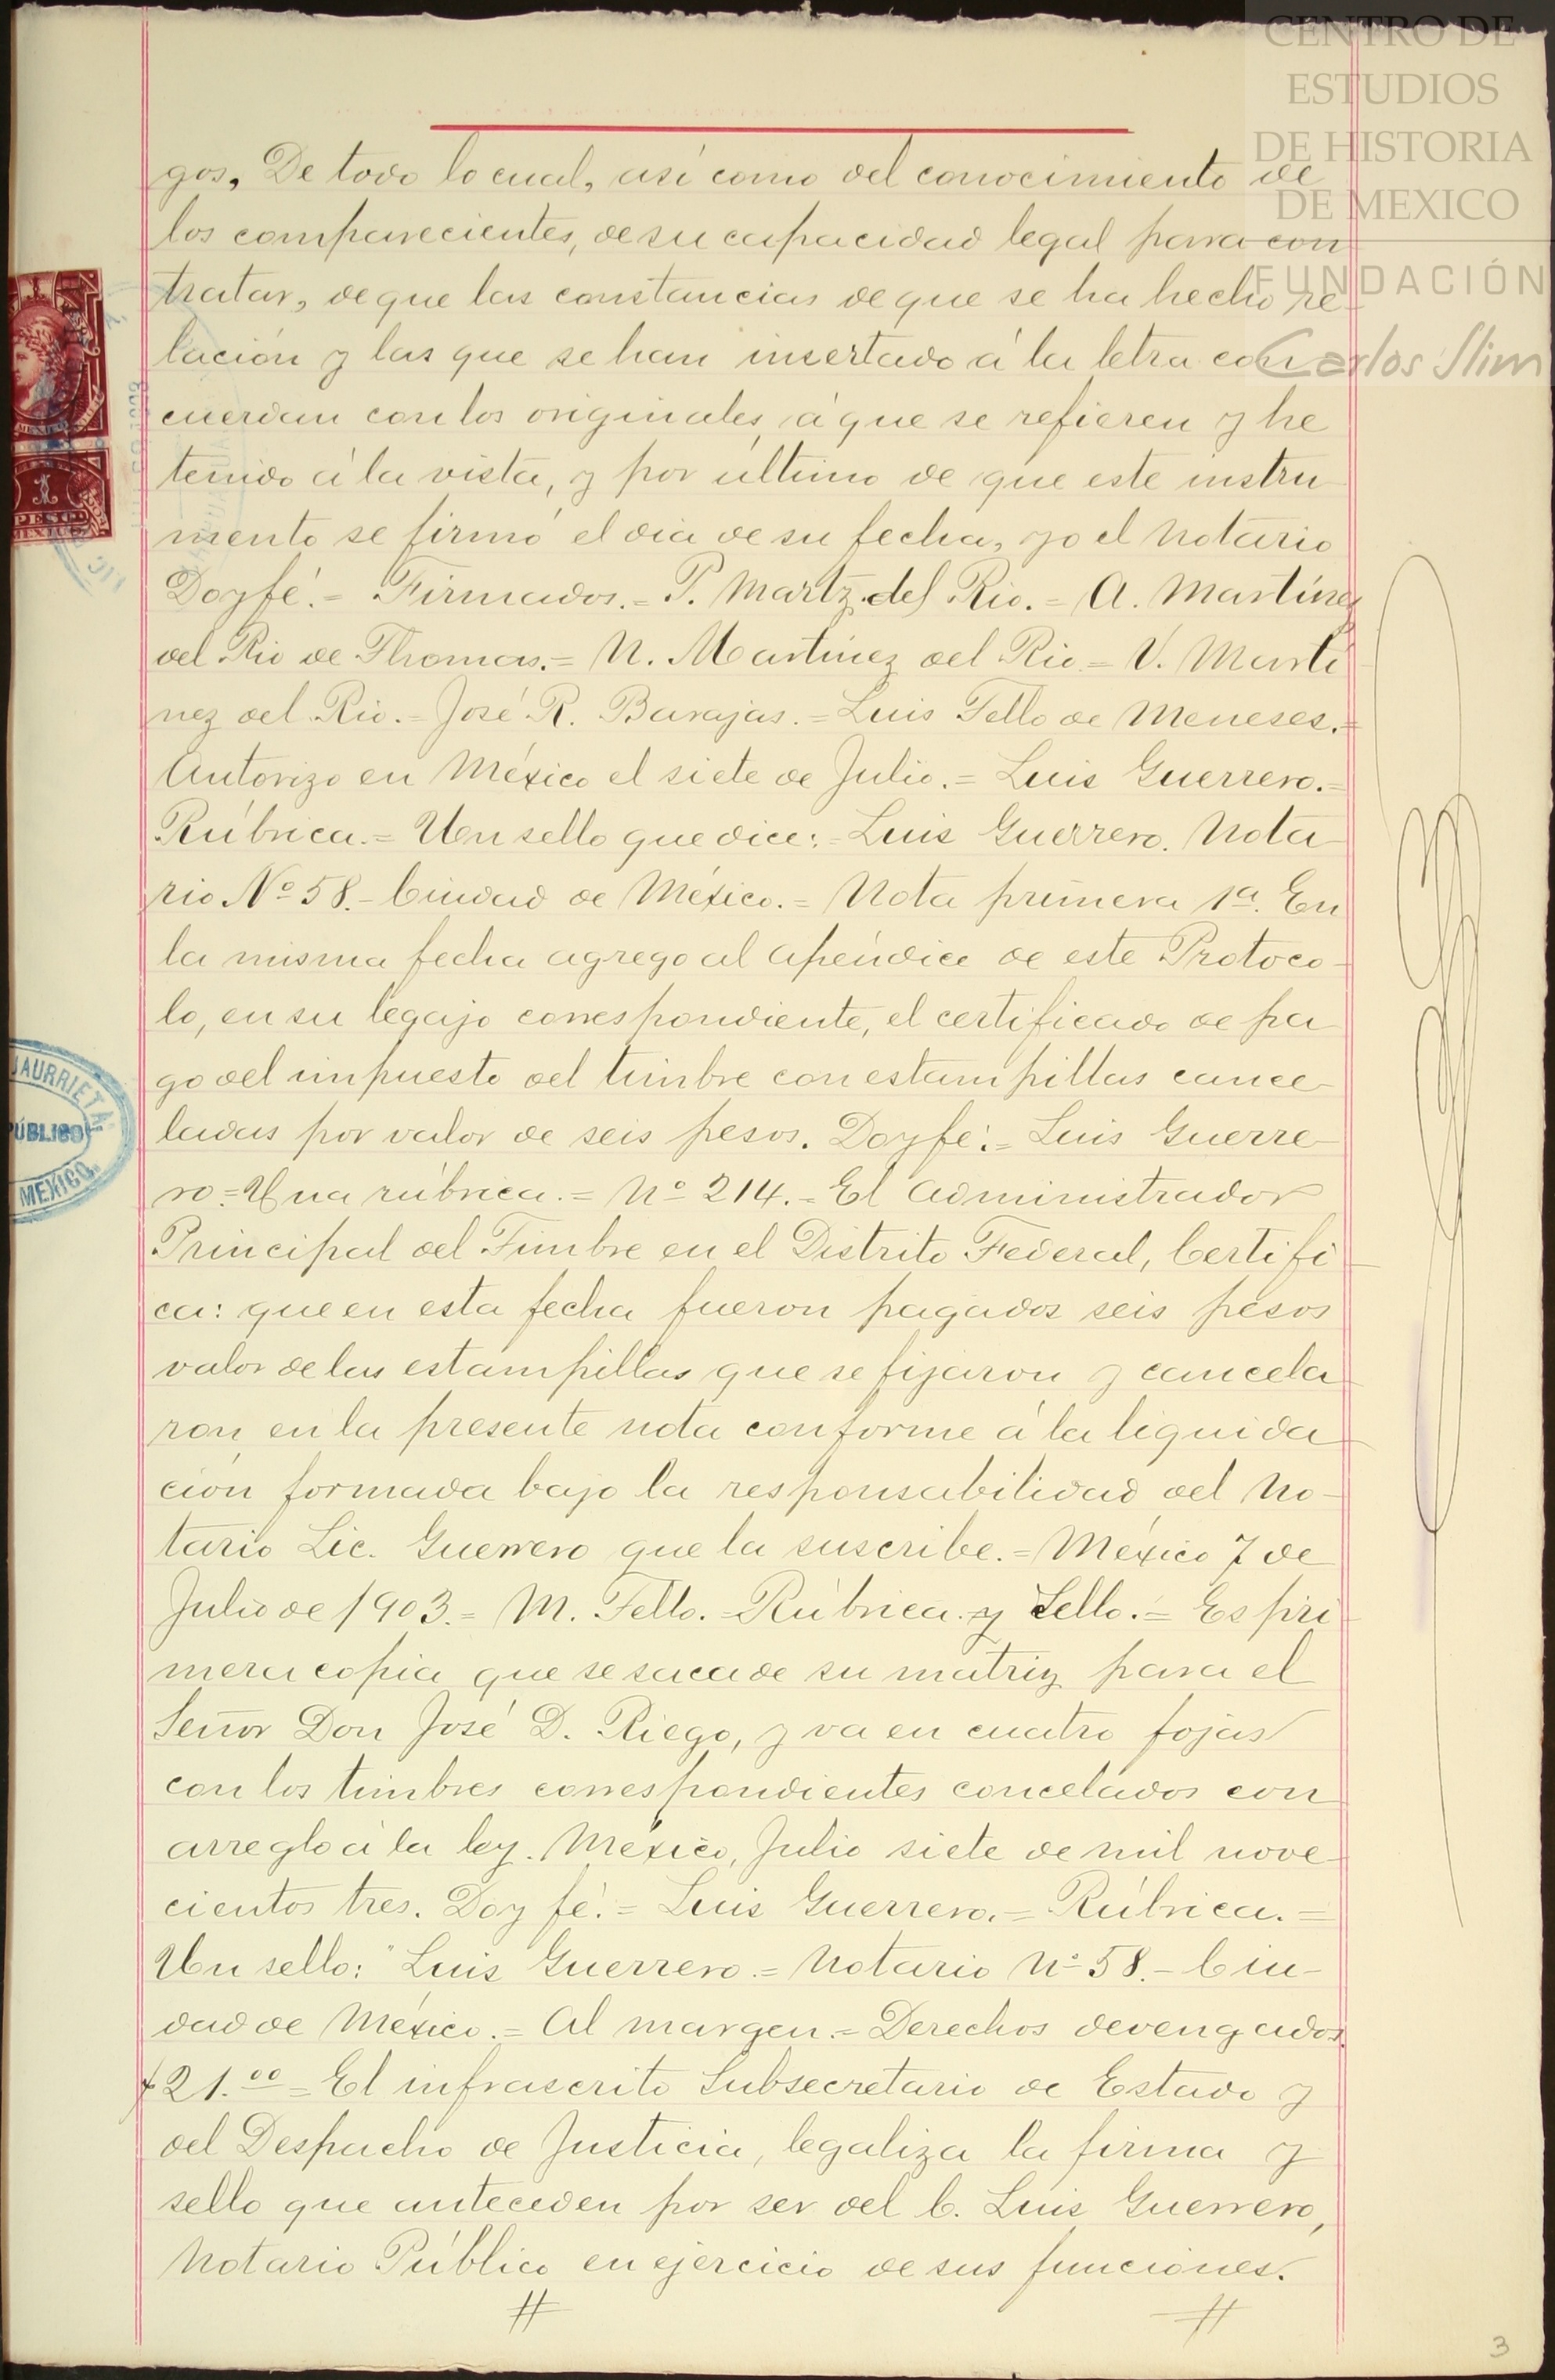 CENTRO DE
ESTUDIOS
DE HISTORIA
DE MEXICO
FUNDACIÓN
Carlos Slim
gos, De todo lo cual, así como del conocimiento de
los comparecientes, de su capacidad legal para con
tratar, de que las constancias de que se ha hecho re-
lación y las que se han insertado á la letra con
cuerdan con los originales, á que se refieren y he
tenido á la vista, y por último de que este instru
mento se firmó el dia de su fecha, yo el Notario
Doy fé.= Firmados.= P. Martz. del Rio.= A. Martínez
del Rio de Thomas.= N. Martínez del Rio= V. Martí
nez del Rio.= José R. Barajas.= Luis Tello de Meneses.=
Autorizo en México el siete de Julio.= Luis Guerrero.=
Rúbrica.= Un sello que dice:= Luis Guerrero. Nota
rio Nº 58.- Ciudad de México.= Nota primera 1ª. En
la misma fecha agrego al apéndice de este Protoco-
lo, en su legajo correspondiente, el certificado de pa
go del impuesto del timbre con estampillas cance-
ladas por valor de seis pesos. Doy fé:= Luis Guerre-
ro.= Una rúbrica.= Nº 214.= El Administrador
Principal del Timbre en el Distrito Federal, Certifi
ca: que en esta fecha fueron pagados seis pesos
valor de las estampillas que se fijaron y cancela
ron en la presente nota conforme á la liquida
ción formada bajo la responsabilidad del No-
tario Lic. Guerrero que la suscribe.= México 7 de
Julio de 1903.= M. Tello.= Rúbrica y Sello.= Es pri
mera copia que se saca de su matriz para el
Señor Don José D. Riego, y va en cuatro fojas
con los timbres correspondientes concelados con
arreglo á la ley. México, Julio siete de mil nove-
cientos tres. Doy fé.= Luis Guerrero.= Rúbrica.=
Un sello: "Luis Guerrero.= Notario Nº 58.- Ciu-
dad de México.= Al margen.= Derechos devengados
$21.00= El infrascrito Subsecretario de Estado y
del Despacho de Justicia, legaliza la firma y
sello que anteceden por ser del C. Luis Guerrero,
Notario Público en ejercicio de sus funciones.
JAURRIETA
PÚBLICO
MEXICO.
1
PESO
MEXICO
3